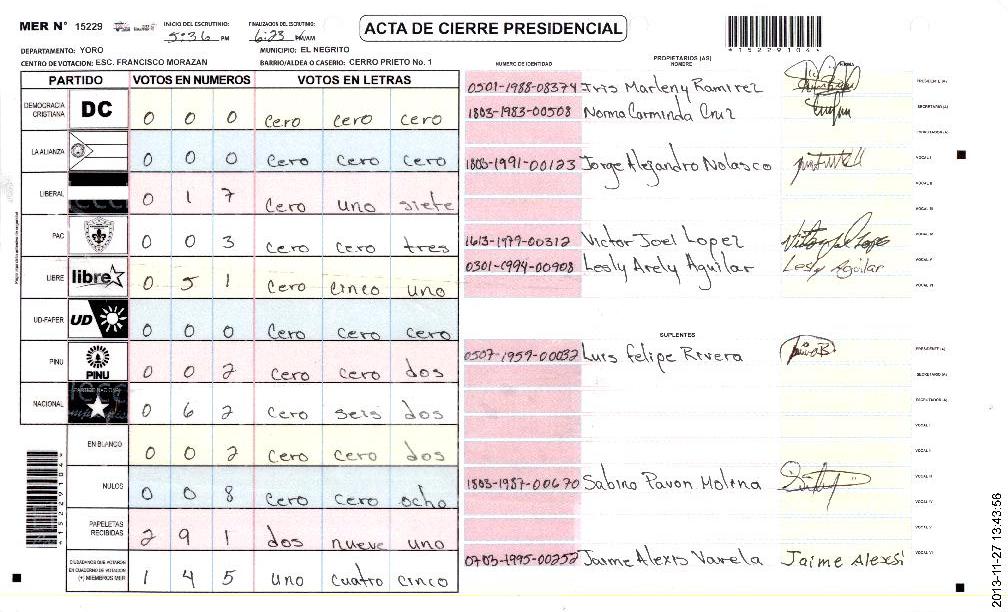 MER N° 15229 INICIO DEL ESCRUTINIO: 5:36 PM FINALIZACION DEL ESCRUTINIO: 6:23 PM/AM ACTA DE CIERRE PRESIDENCIAL
DEPARTAMENTO: YORO MUNICIPIO: EL NEGRITO
CENTRO DE VOTACION: ESC. FRANCISCO MORAZAN BARRIO/ALDEA O CASERIO: CERRO PRIETO No. 1
1 5 2 2 9 1 0 4 4
PARTIDO VOTOS EN NUMEROS VOTOS EN LETRAS
DEMOCRACIA CRISTIANA DC 0 0 0 cero cero cero
LA ALIANZA 0 0 0 cero cero cero
LIBERAL 0 1 7 cero uno siete
PAC 0 0 3 cero cero tres
LIBRE libre 0 5 1 cero cinco uno
UD-FAPER UD 0 0 0 cero cero cero
PINU PINU 0 0 2 cero cero dos
NACIONAL 0 6 2 cero seis dos
EN BLANCO 0 0 2 cero cero dos
NULOS 0 0 8 cero cero ocho
PAPELETAS RECIBIDAS 2 9 1 dos nueve uno
CIUDADANOS QUE VOTARON EN CUADERNO DE VOTACION (+) MIEMBROS MER 1 4 5 uno cuatro cinco
NUMERO DE IDENTIDAD PROPIETARIOS (AS) NOMBRE FIRMA
0501-1988-08374 Iris Marleny Ramirez PRESIDENTE (A)
1803-1983-00508 Norma Carminda Cruz SECRETARIO (A)
ESCRUTADOR (A)
1803-1991-00123 Jorge Alejandro Nolasco VOCAL I
VOCAL II
VOCAL III
1613-1979-00312 Victor Joel Lopez VOCAL IV
0301-1994-00908 Lesly Arely Aguilar Lesly Aguilar VOCAL V
VOCAL VI
SUPLENTES
0507-1959-00032 Luis Felipe Rivera PRESIDENTE (A)
SECRETARIO (A)
ESCRUTADOR (A)
VOCAL I
VOCAL II
1803-1987-00670 Sabino Pavon Molena VOCAL III
VOCAL IV
VOCAL V
0703-1995-00252 Jaime Alexis Varela Jaime Alexsi VOCAL VI
2013-11-27 13:43:56